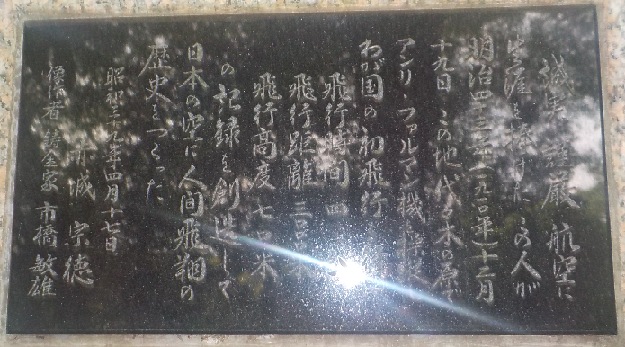 誠実 謹厳 航空に
生涯を捧げたこの人が
明治四十三年(一九一〇年)十二月
十九日 この地代々木の原で
アンリ・ファルマン機
わが国の初飛行
飛行時間四
飛行距離 三〇〇〇米
飛行高度 七〇米
の記録を創造して
日本の空に人間飛翔の
歴史をつくった
昭和三十九年四月十七日
片城 宗徳
僕作者鋳金家 市橋敏雄